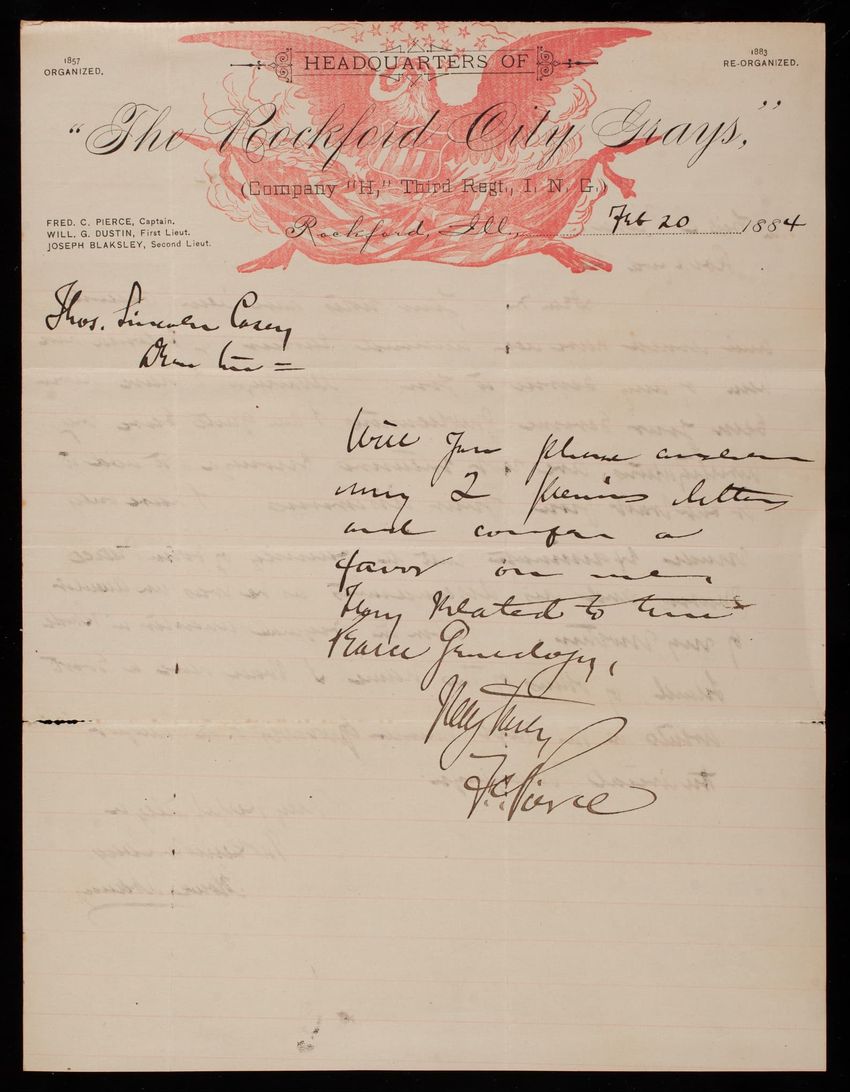 1857
ORGANIZED.
1883
RE-ORGANIZED.
HEADQUARTERS OF
"The Rockford City Grays,"
(Company "H," Third Regt., I. N. G.)
FRED. C. PIERCE, Captain.
WILL. G. DUSTIN, First Lieut.
JOSEPH BLAKSLEY, Second Lieut.
Rockford, Ill., Feb 20 1884
Thos. Lincoln Casey
Dear Sir =
Will you please answer
my 2 previous letters
and confer a
favor on me,
They related to the
Pearce Genealogy,
Very Truly
F.C. Pierce